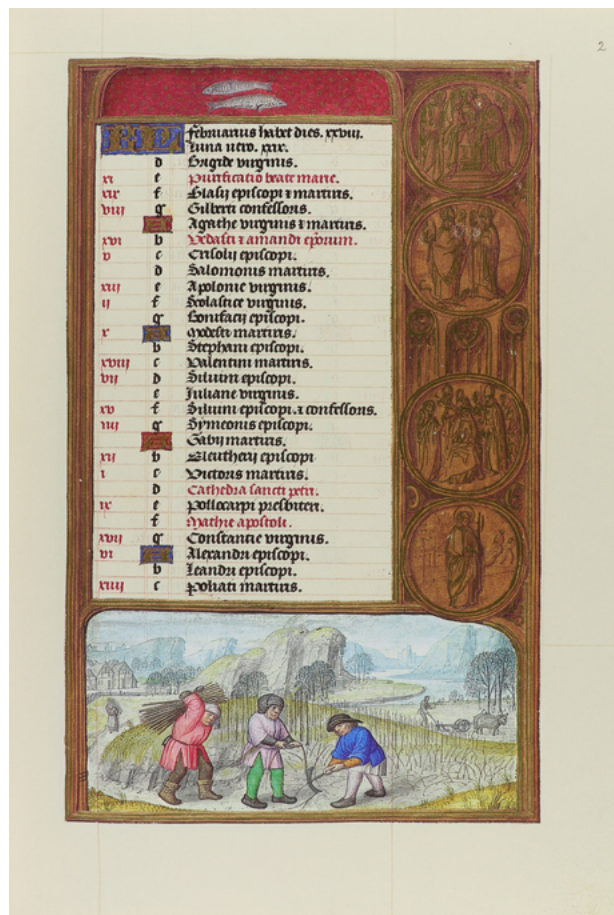 2
februarius habet dies. xxviii.
Luna vero. xxix.
d Brigide virginis.
xi e Purificatio beate marie.
xix f Blasii episcopi ⁊ martiris.
viii g Gilberti confessoris.
Agathe virginis ⁊ martiris.
xvi b Vedasti ⁊ amandi ep̄orum.
v c Crisolii episcopi.
d Salomonis martiris.
xiii e Apolonie virginis.
ii f Scolastice virginis.
g Bonifacii episcopi.
x Modesti martiris.
b Stephani episcopi.
xviii c Valentini martiris.
vii d Siluini episcopi.
e Juliane virginis.
xv f Siluini episcopi. ⁊ confessoris.
iiii g Symeonis episcopi.
Gabii martiris.
xii b Eleutherii episcopi
i c Victoris martiris.
d Cathedra sancti petri.
ix e Pollicarpi presbiteri.
f Mathie apostoli.
xvii g Constantie virginis.
vi Alexandri episcopi.
b Leandri episcopi.
xiiii c
martiris.